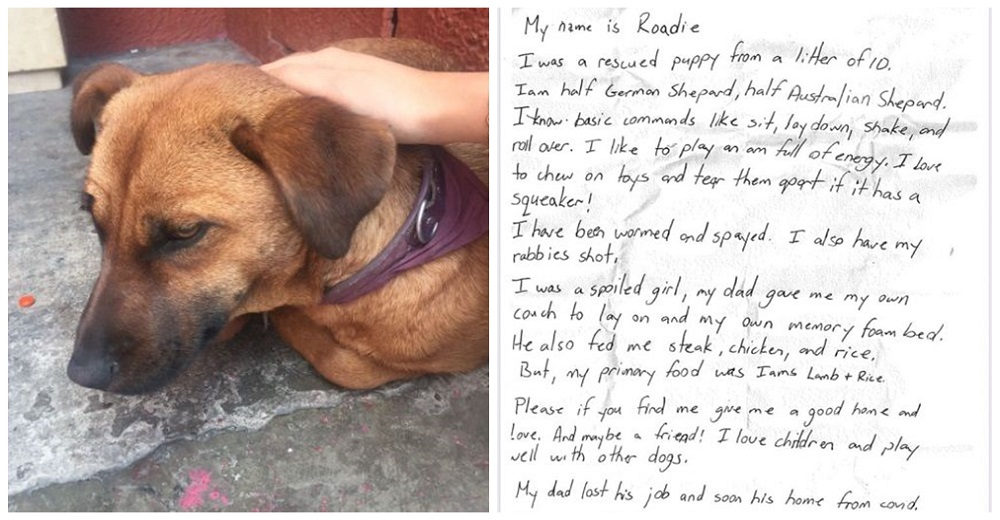 My name is Roadie
I was a rescued puppy from a litter of 10.
I am half German Shepard, half Australian Shepard.
I know basic commands like sit, lay down, shake, and
roll over. I like to play an am full of energy. I love
to chew on toys and tear them apart if it has a
squeaker!
I have been wormed and spayed. I also have my
rabbies shot.
I was a spoiled girl, my dad gave me my own
couch to lay on and my own memory foam bed.
He also fed me steak, chicken, and rice.
But, my primary food was Iams Lamb + Rice
Please if you find me give me a good home and
love. And maybe a friend! I love children and play
well with other dogs.
My dad lost his job and soon his home from covid.